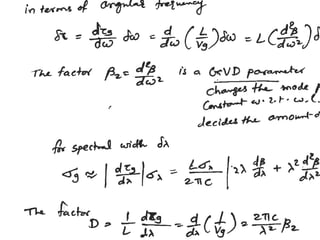 in terms of angular frequency
δτ = dτg/dω δω = d/dω (L/Vg) δω = L (d²β/dω²) δ
The factor β₂ = d²β/dω² is a GVD parameter
changes the mode
constant w.r.t. w.
decides the amount
for spectral width δλ
σg ≈ |dτg/dλ| σλ = Lσλ/2πc |2λ dβ/dλ + λ² d²β/dλ²
The factor
D = 1/L dτg/dλ = d/dλ (1/Vg) = 2πc/λ² β₂